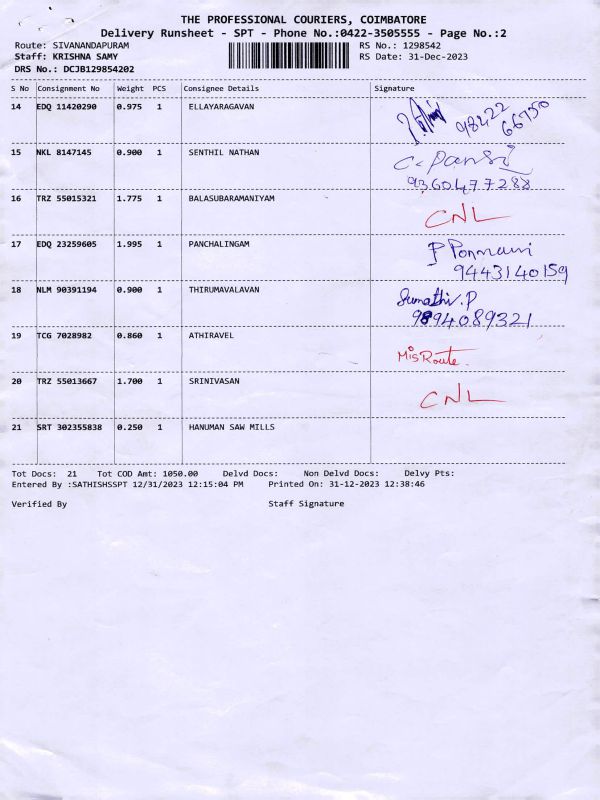 THE PROFESSIONAL COURIERS, COIMBATORE
Delivery Runsheet - SPT - Phone No.:0422-3505555 - Page No.:2
Route: SIVANANDAPURAM RS No.: 1298542
Staff: KRISHNA SAMY RS Date: 31-Dec-2023
DRS No.: DCJB129854202
S No Consignment No Weight PCS Consignee Details Signature
14 EDQ 11420290 0.975 1 ELLAYARAGAVAN 98422 66750
15 NKL 8147145 0.900 1 SENTHIL NATHAN C. Pansi
9360477288
16 TRZ 55015321 1.775 1 BALASUBARAMANIYAM CNL
17 EDQ 23259605 1.995 1 PANCHALINGAM P Ponmani
9443140159
18 NLM 90391194 0.900 1 THIRUMAVALAVAN Sumathi.P
9894089321
19 TCG 7028982 0.860 1 ATHIRAVEL MisRoute.
20 TRZ 55013667 1.700 1 SRINIVASAN CNL
21 SRT 302355838 0.250 1 HANUMAN SAW MILLS
Tot Docs: 21 Tot COD Amt: 1050.00 Delvd Docs: Non Delvd Docs: Delvy Pts:
Entered By :SATHISHSSPT 12/31/2023 12:15:04 PM Printed On: 31-12-2023 12:38:46
Verified By Staff Signature